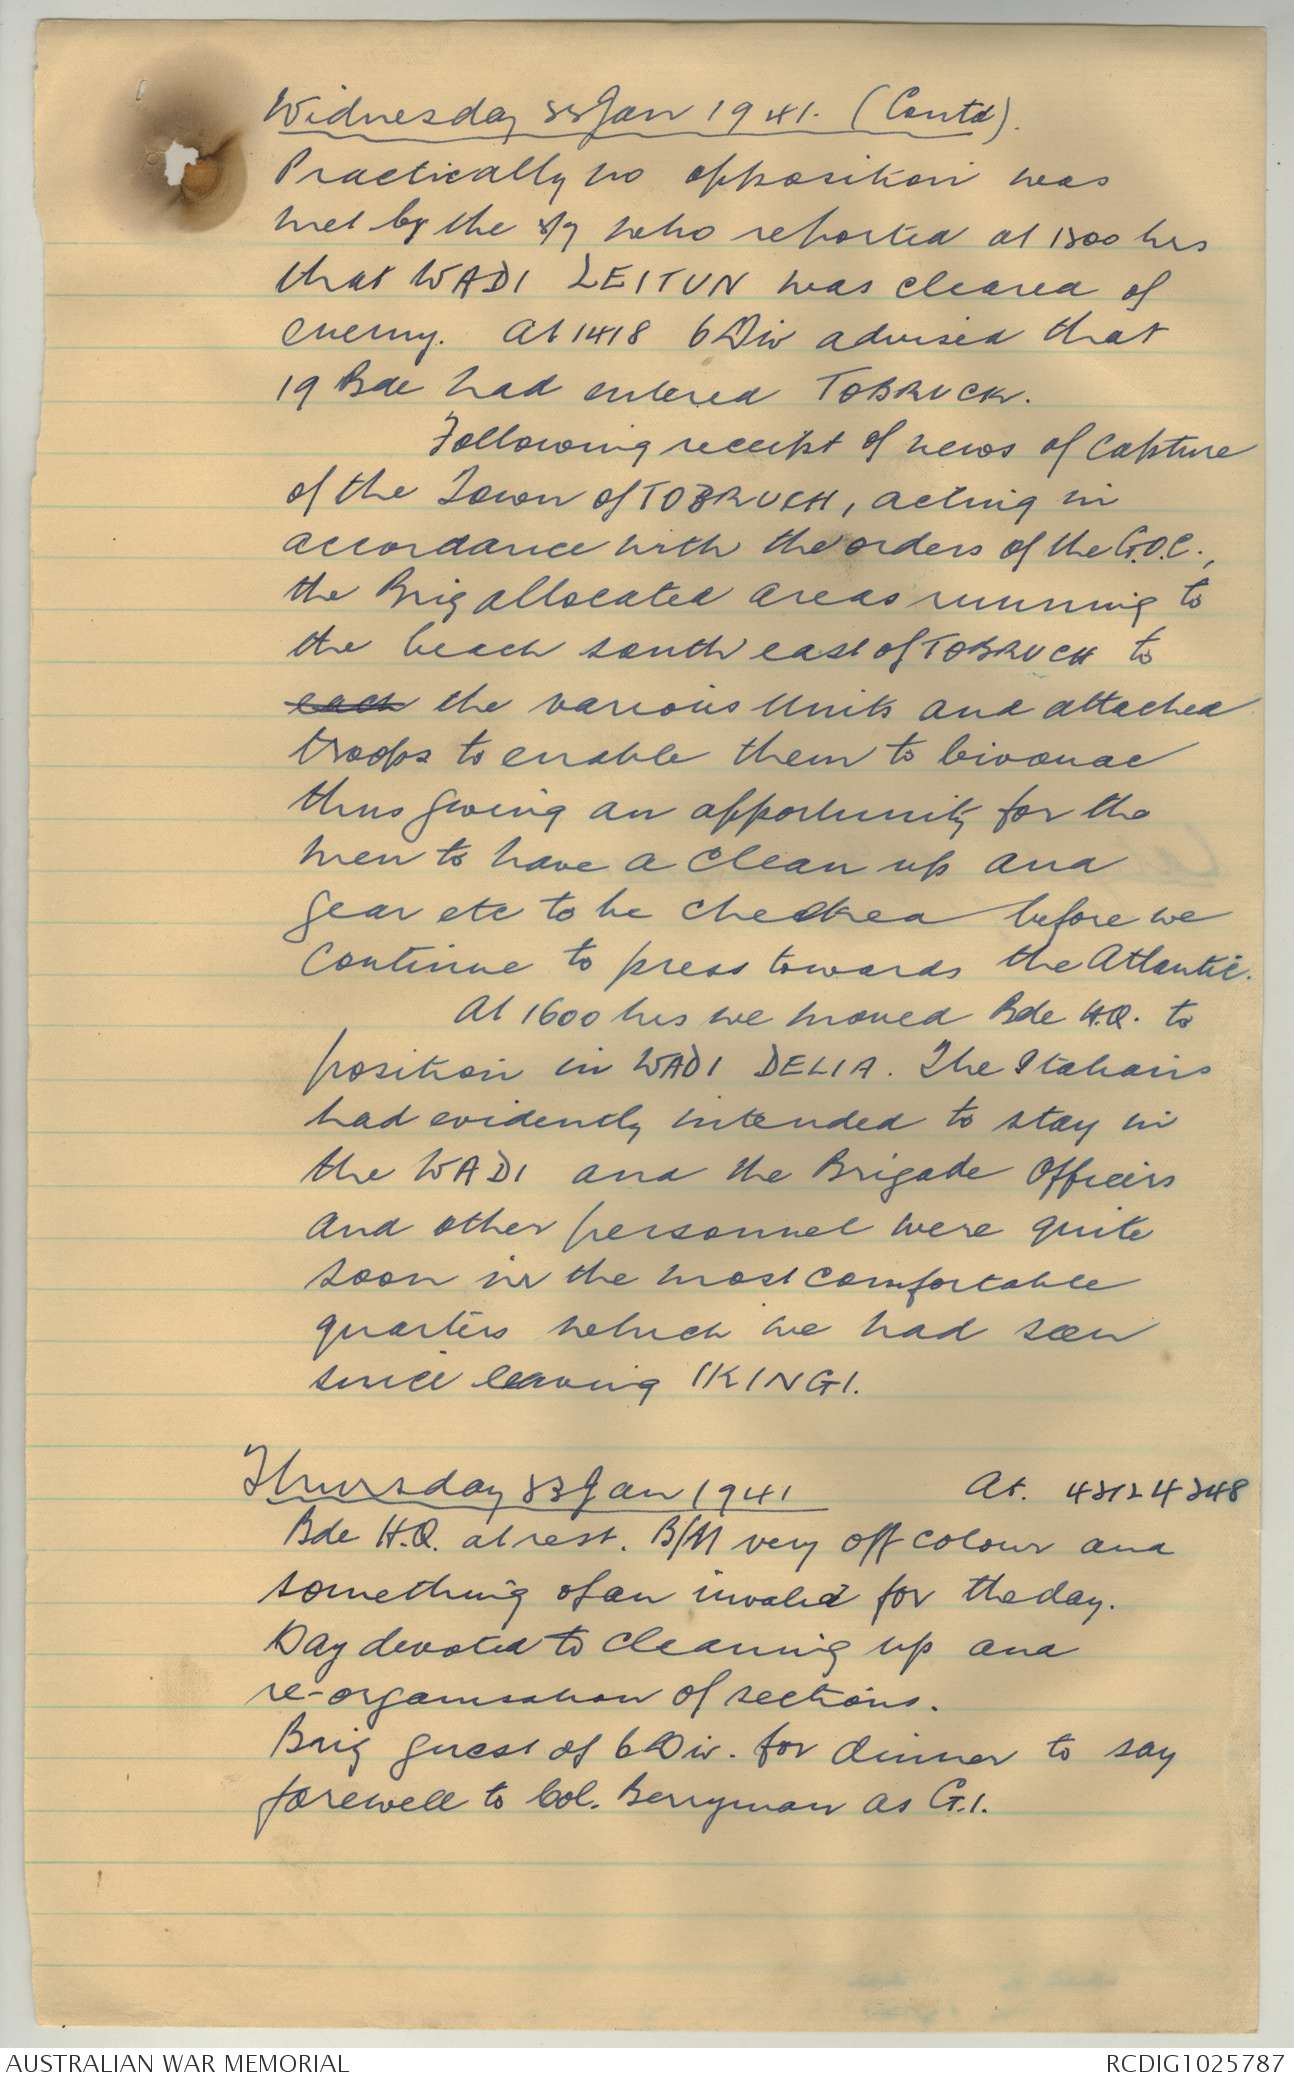 Wednesday 22 Jan 1941. (Contd).
Practically no opposition was
met by the 2/7 who reported at 1200 hrs
that WADI ZEITUN was cleared of
enemy. At 1418 6 Div advised that
19 Bde had entered TOBRUCK.
Following receipt of news of capture
of the Town of TOBRUCH, acting in
accordance with the orders of the G.O.C.,
the Brig allocated areas running to
the beach south east of TOBRUCH to
each the various Units and attached
troops to enable them to bivouac
thus giving an opportunity for the
men to have a clean up and
gear etc to be checked before we
continue to press towards the Atlantic.
At 1600 hrs we moved Bde H.Q. to
position in WADI DELIA. The Italians
had evidently intended to stay in
the WADI and the Brigade Officers
and other personnel were quite
soon in the most comfortable
quarters which we had seen
since leaving IKINGI.
Thursday 23 Jan 1941 At. 42124248
Bde H.Q. at rest. B/M very off colour and
something of an invalid for the day.
Day devoted to cleaning up and
re-organisation of sections.
Brig guest of 6 Div. for dinner to say
farewell to Col. Berryman as G.1.
AUSTRALIAN WAR MEMORIAL
RCDIG1025787